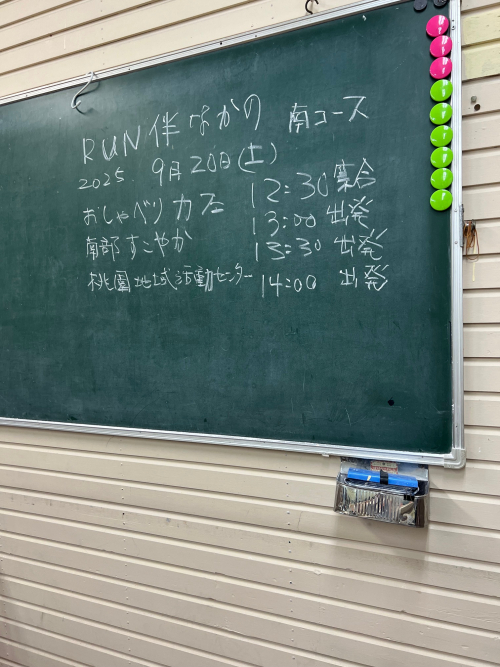 RUN伴なかの 南コース
2025 9月20日(土)
12:30 集合
おしゃべりカフェ 13:00 出発
南部すこやか 13:30 出発
桃園地域活動センター 14:00 出発